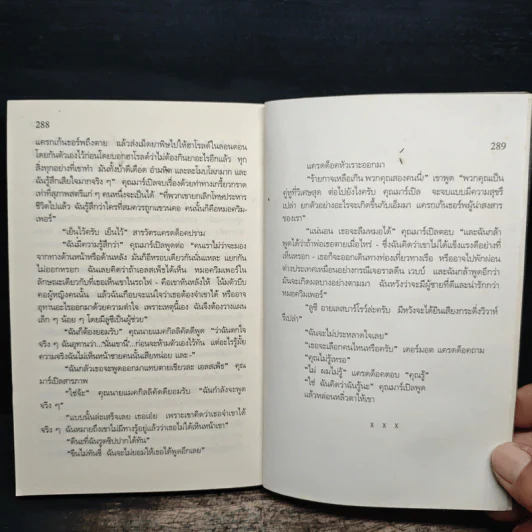 288
แครกเก้นธอร์พถึงตาย แล้วส่งเม็ดยาพิษไปให้ฮาโรลด์ในลอนดอน
โดยกันตัวเองไว้ก่อนโดยบอกฮาโรลด์ว่าไม่ต้องกินยาอะไรอีกแล้ว ทุก
สิ่งทุกอย่างที่เขาทำ มันทั้งบ้าดีเดือด อำมหิต และละโมบโลภมาก และ
ฉันรู้สึกเสียใจมากจริง ๆ" คุณมาร์เปิลจบเรื่องด้วยท่าทางเกรี้ยวกราด
เท่าที่สุภาพสตรีแก่ ๆ คนหนึ่งจะเป็นได้ "ที่พวกเขายกเลิกโทษประหาร
ชีวิตไปแล้ว ฉันรู้สึกว่าใครที่สมควรถูกแขวนคอ คนนั้นก็คือหมอควิม
เพอร์"
"เย็นไว้ครับ เย็นไว้" สารวัตรแครดด็อคปราม
"ฉันมีความรู้สึกว่า" คุณมาร์เปิลพูดต่อ "คนเราไม่ว่าจะมอง
จากทางด้านหน้าหรือด้านหลัง มันก็อีหรอบเดียวกันนั่นแหละ แยกกัน
ไม่ออกหรอก ฉันเลยคิดว่าถ้าเอลสเพ็ธได้เห็น หมอควิมเพอร์ใน
ลักษณะเดียวกับที่เธอเห็นเขาในรถไฟ - คือเขาหันหลังให้ โน้มตัวบีบ
คอผู้หญิงคนนั้น แล้วฉันก็อบจะแน่ใจว่าเธอต้องจำเขาได้ หรืออาจ
อุทานอะไรออกมาด้วยความตำใจ เพราะเหตุนี้เอง ฉันจึงต้องวางแผน
เล็ก ๆ น้อย ๆ โดยมีลูซี่เป็นผู้ช่วย"
"ฉันก็ต้องยอมรับ" คุณนายแมคกิลลิคัดดีพูด "ว่าฉันตกใจ
จริง ๆ ฉันอุทานว่า..'นั่นเขานี่'..ก่อนจะห้ามตัวเองไว้ทัน แต่อะไรรู้มั้ย
ความจริงฉันไม่เห็นหน้าชายคนนั้นเสียหน่อย และ-"
"ฉันกลัวเธอจะพูดออกมาแทบตายเชียวละ เอลสเพ็ธ" คุณ
มาร์เปิลสารภาพ
"ใช่จ้ะ" คุณนายแมคกิลลิคัดดียอมรับ "ฉันกำลังจะพูด
จริง ๆ"
"แบบนั้นล่ะเสร็จเลย เธอเอ๋ย เพราะเขาคิดว่าเธอจำเขาได้
จริง ๆ ฉันหมายถึงเขาไม่มีทางรู้อยู่แล้วว่าเธอไม่ได้เห็นหน้าเขา"
"ดีนะที่ฉันรูดซิปปากได้ทัน"
"ขืนไม่ทันซี่ ฉันจะไม่ยอมให้เธอได้พูดอีกเลย"
289
แครดด็อคหัวเราะออกมา
"ร้ายกาจเหลือเกิน พวกคุณสองคนนี่!" เขาพูด "พวกคุณเป็น
คู่หูที่วิเศษสุด ต่อไปยังไงครับ คุณมาร์เปิล จะจบแบบมีความสุขรึ
เปล่า ยกตัวอย่างอะไรจะเกิดขึ้นกับเอ็มมา แครกเก้นธอร์พผู้น่าสงสาร
ของเรา"
"แน่นอน เธอจะลืมหมอได้" คุณมาร์เปิลตอบ "และฉันกล้า
พูดได้ว่าถ้าพ่อเธอตายเมื่อไหร่ - ซึ่งฉันคิดว่าเขาไม่ได้แข็งแรงดีอย่างที่
เห็นหรอก - เธอก็จะออกเดินทางท่องเที่ยวทางเรือ หรืออาจไปพักผ่อน
ต่างประเทศเหมือนอย่างกรณีเจอรัลดีน เวบบ์ และฉันกล้าพูดอีกว่า
มันจะเกิดผลบางอย่างตามมา ฉันหวังว่าจะมีผู้ชายที่ดีและน่ารักกว่า
หมอควิมเพอร์"
"ลูซี่ อายเลสบาร์โรว์ล่ะครับ มีหวังจะได้ยินเสียงกระดิ่งวิวาห์
รึเปล่า"
"ฉันจะไม่ประหลาดใจเลย"
"เธอจะเลือกคนไหนหรือครับ" เดอร์มอต แครดด็อคถาม
"คุณไม่รู้เหรอ"
"ไม่ ผมไม่รู้" แครดด็อคตอบ "คุณรู้"
"ใช่ ฉันคิดว่าฉันรู้นะ" คุณมาร์เปิลพูด
แล้วหล่อนหลิ่วตาให้เขา
x x x